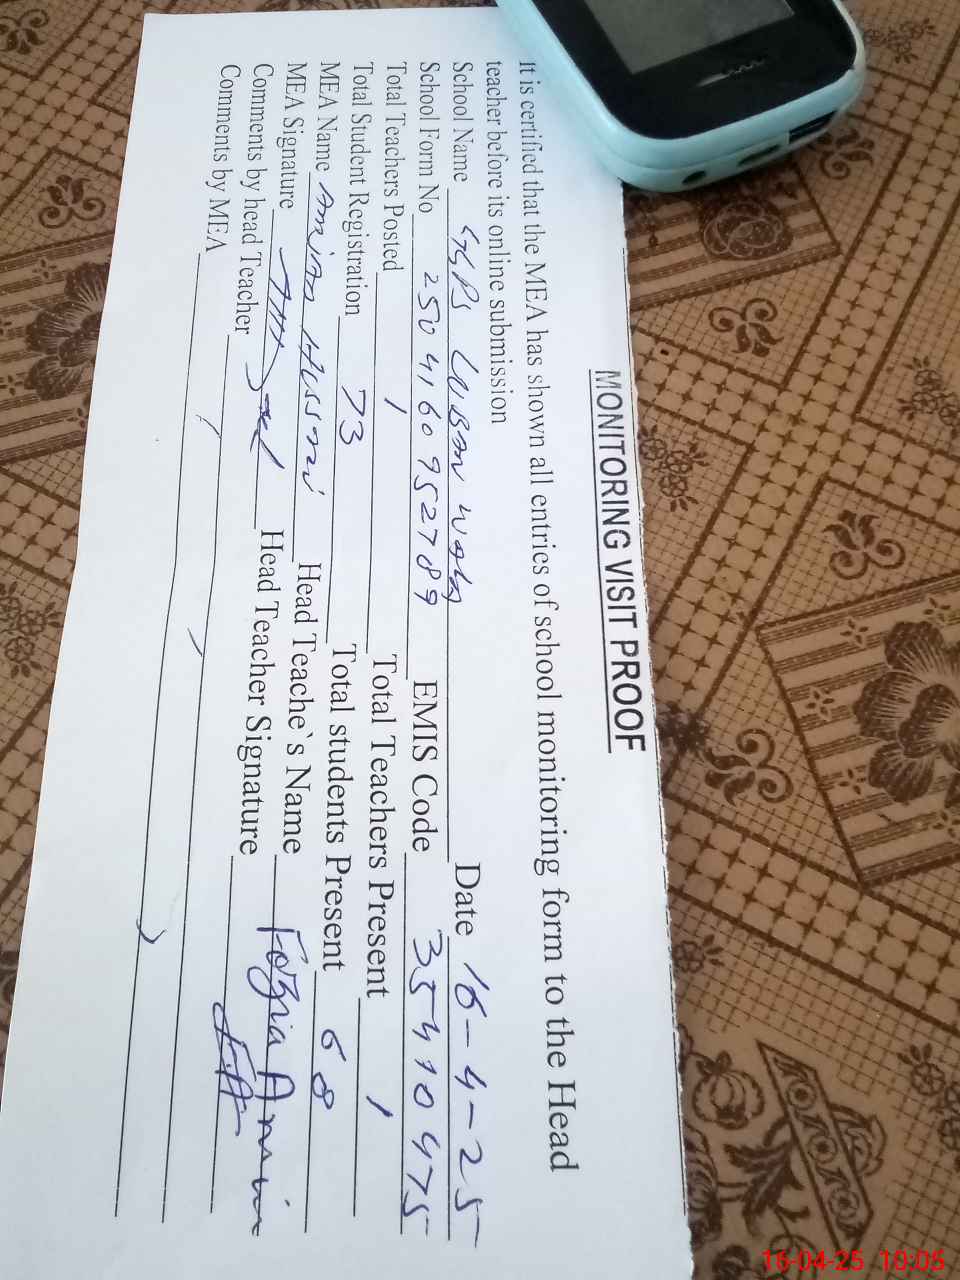 MONITORING VISIT PROOF
It is certified that the MEA has shown all entries of school monitoring form to the Head
teacher before its online submission
School Name GGPS Date 16-4-25
School Form No 2504160952789 EMIS Code 35410475
Total Teachers Posted 1 Total Teachers Present 1
Total Student Registration 73 Total students Present 68
MEA Name Head Teache`s Name Fozia Amin
MEA Signature Head Teacher Signature
Comments by head Teacher
Comments by MEA
16-04-25 10:05